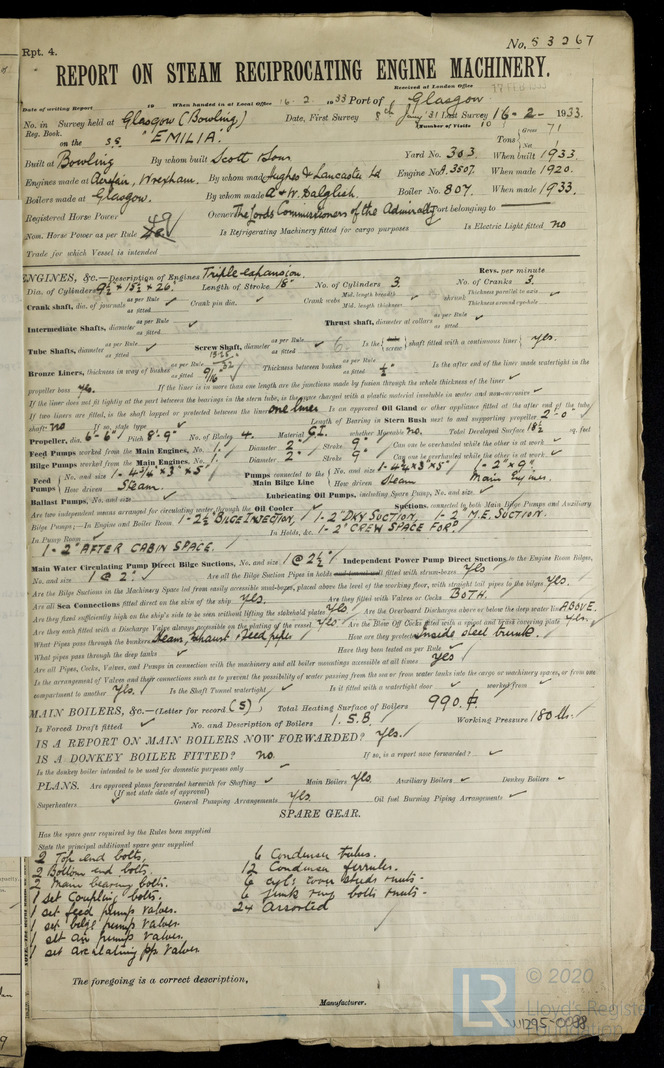 Rpt. 4.
No. 53267
REPORT ON STEAM RECIPROCATING ENGINE MACHINERY.
Received at London Office
Date of writing Report 19 When handed in at Local Office 16. 2. 1933 Port of Glasgow
No. in Survey held at Glasgow (Bowling) Date, First Survey 8th Last Survey 16-2-1933.
Reg. Book. (Number of Visits 10)
on the S.S. "EMILIA". Tons { Gross 71
Net
Built at Bowling By whom built Scott & Sons Yard No. 303 When built 1933.
Engines made at Acrefair, Wrexham. By whom made Hughes & Lancaster Ld Engine No. A.3507. When made 1920.
Boilers made at Glasgow. By whom made A & W. Dalglish. Boiler No. 807. When made 1933.
Registered Horse Power Owners The Lords Commissioners of the Admiralty Port belonging to
Nom. Horse Power as per Rule 49 Is Refrigerating Machinery fitted for cargo purposes Is Electric Light fitted no
Trade for which Vessel is intended
ENGINES, &c.—Description of Engines Triple expansion. Revs. per minute
Dia. of Cylinders 9½ × 15½ × 26. Length of Stroke 18" No. of Cylinders 3. No. of Cranks 3.
Crank shaft, dia. of journals as per Rule as fitted Crank pin dia. Crank webs Mid. length breadth Mid. length thickness shrunk Thickness parallel to axis Thickness around eyehole
Intermediate Shafts, diameter as per Rule as fitted Thrust shaft, diameter at collars as per Rule as fitted
Tube Shafts, diameter as per Rule as fitted Screw Shaft, diameter as per Rule as fitted Is the { tube screw } shaft fitted with a continuous liner { yes.
Bronze Liners, thickness in way of bushes as per Rule as fitted 9/16" Thickness between bushes as per Rule as fitted ½" Is the after end of the liner made watertight in the
propeller boss yes. If the liner is in more than one length are the junctions made by fusion through the whole thickness of the liner
If the liner does not fit tightly at the part between the bearings in the stern tube, is the space charged with a plastic material insoluble in water and non-corrosive
If two liners are fitted, is the shaft lapped or protected between the liners one liner Is an approved Oil Gland or other appliance fitted at the after end of the tube
shaft no If so, state type Length of Bearing in Stern Bush next to and supporting propeller 2'-0"
Propeller, dia. 6'-6" Pitch 8'-9" No. of Blades 4. Material C.I. whether Moveable no. Total Developed Surface 18½ sq. feet
Feed Pumps worked from the Main Engines, No. 1. Diameter 2" Stroke 9" Can one be overhauled while the other is at work
Bilge Pumps worked from the Main Engines, No. 1. Diameter 2" Stroke 9" Can one be overhauled while the other is at work
Feed Pumps { No. and size 1-4¾" × 3" × 5" How driven Steam. Pumps connected to the Main Bilge Line { No. and size 1-4¾ × 3" × 5" 1-2" × 9" How driven Steam Main Engines.
Ballast Pumps, No. and size Lubricating Oil Pumps, including Spare Pump, No. and size
Are two independent means arranged for circulating water through the Oil Cooler Suctions, connected to both Main Bilge Pumps and Auxiliary
Bilge Pumps;—In Engine and Boiler Room 1-2½" BILGE INJECTION, 1-2" DKY SUCTION, 1-2" M.E. SUCTION.
In Pump Room In Holds, &c. 1-2" CREW SPACE FORD
1-2" AFTER CABIN SPACE.
Main Water Circulating Pump Direct Bilge Suctions, No. and size 1 @ 2½" Independent Power Pump Direct Suctions to the Engine Room Bilges,
No. and size 1 @ 2". Are all the Bilge Suction Pipes in holds and tunnel well fitted with strum-boxes yes
Are the Bilge Suctions in the Machinery Space led from easily accessible mud-boxes, placed above the level of the working floor, with straight tail pipes to the bilges yes.
Are all Sea Connections fitted direct on the skin of the ship yes. Are they fitted with Valves or Cocks BOTH.
Are they fixed sufficiently high on the ship's side to be seen without lifting the stokehold plates yes Are the Overboard Discharges above or below the deep water line ABOVE.
Are they each fitted with a Discharge Valve always accessible on the plating of the vessel yes Are the Blow Off Cocks fitted with a spigot and brass covering plate yes.
What Pipes pass through the bunkers Steam, Exhaust & Feed pipes How are they protected Inside steel trunk.
What pipes pass through the deep tanks Have they been tested as per Rule
Are all Pipes, Cocks, Valves, and Pumps in connection with the machinery and all boiler mountings accessible at all times yes
Is the arrangement of Valves and their connections such as to prevent the possibility of water passing from the sea or from water tanks into the cargo or machinery spaces, or from one
compartment to another yes. Is the Shaft Tunnel watertight Is it fitted with a watertight door worked from
MAIN BOILERS, &c.—(Letter for record (S)) Total Heating Surface of Boilers 990
Is Forced Draft fitted No. and Description of Boilers 1. S.B. Working Pressure 180 lb.
IS A REPORT ON MAIN BOILERS NOW FORWARDED? yes.
IS A DONKEY BOILER FITTED? no. If so, is a report now forwarded?
Is the donkey boiler intended to be used for domestic purposes only
PLANS. Are approved plans forwarded herewith for Shafting Main Boilers yes. Auxiliary Boilers Donkey Boilers
(If not state date of approval)
Superheaters General Pumping Arrangements yes. Oil fuel Burning Piping Arrangements
SPARE GEAR.
Has the spare gear required by the Rules been supplied
State the principal additional spare gear supplied
2 Top end bolts. 6 Condenser tubes.
2 Bottom end bolts. 12 Condenser ferrules.
2 Main bearing bolts. 6 cyl. cover studs & nuts.
1 set Coupling bolts. 6 junk ring bolts & nuts.
1 set feed pump valves. 24 Assorted
1 set bilge pump valves.
1 set air pump valves.
1 set circulating pp valves.
The foregoing is a correct description,
Manufacturer.
LR
© 2020
Lloyd's Register
Foundation
W1295-0098